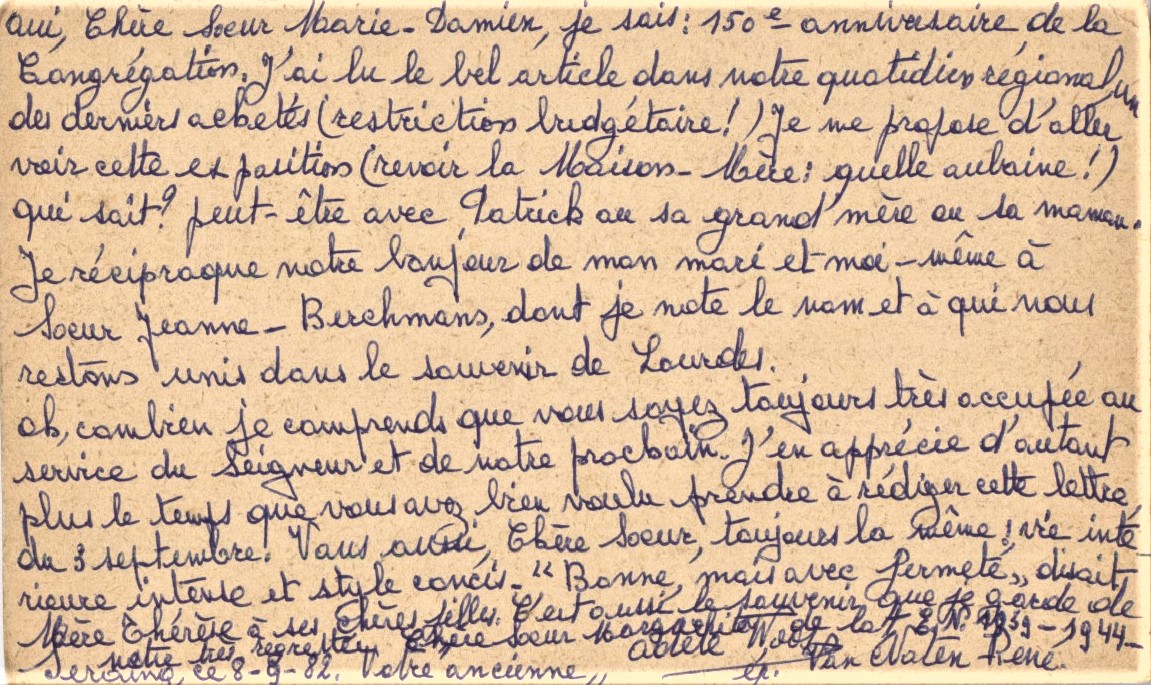 Oui, Chère Sœur Marie-Damien, je sais : 150e anniversaire de la
Congrégation. J'ai lu le bel article dans notre quotidien régional, un
des derniers achetés (restriction budgétaire !) Je me propose d'aller
voir cette exposition (revoir la Maison-Mère : quelle aubaine !)
qui sait ? peut-être avec Patrick ou sa grand'mère ou sa maman.
Je réciproque notre bonjour de mon mari et moi-même à
Sœur Jeanne-Berchmans, dont je note le nom et à qui nous
restons unis dans le souvenir de Lourdes.
oh, combien je comprends que vous soyez toujours très occupée au
service du Seigneur et de notre prochain. J'en apprécie d'autant
plus le temps que vous avez bien voulu prendre à rédiger cette lettre
du 3 septembre. Vous aussi, Chère Sœur, toujours la même : vie inté
rieure intense et style concis - "Bonne, mais avec fermeté", disait
Mère Thérèse à ses chères filles. C'est aussi le souvenir que je garde de
notre très regrettée Chère Sœur de la E.N. 1939-1944-
Seraing, ce 8-9-82. Votre ancienne, Adèle
ép. Van Naten René.